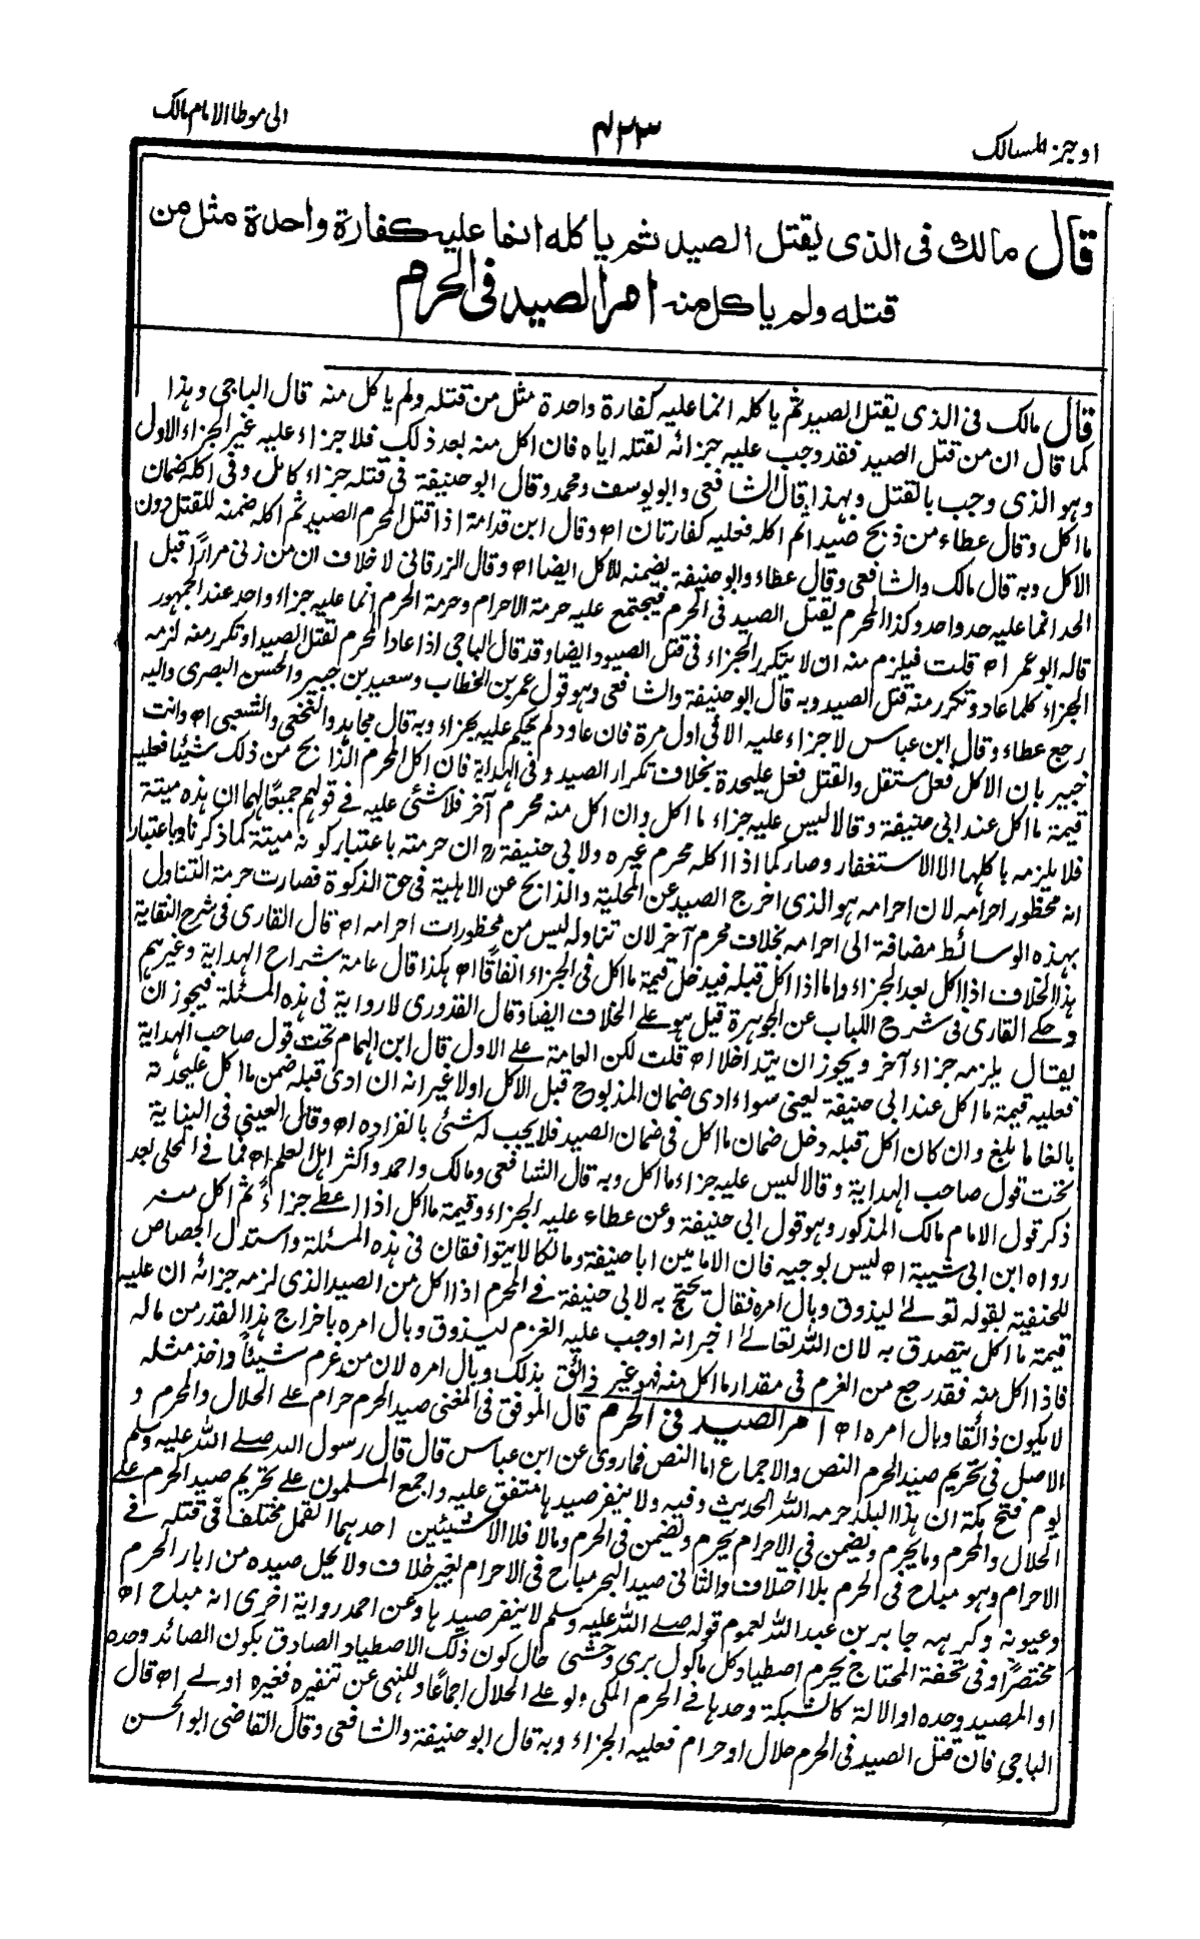 اوجز المسالك
۴۳۳
الى موطا الامام مالك
قال مالك فى الذى يقتل الصيد ثم ياكله انما عليه كفارة واحدة مثل من
قتله ولم ياكل منه امر الصيد فى الحرم
قال مالك فى الذى يقتل الصيد ثم ياكله انما عليه كفارة واحدة مثل من قتله ولم ياكل منه قال الباجى وهذا
كما قال ان من قتل الصيد فقد وجب عليه جزائه لقتله اياه فان اكل منه بعد ذلك فلا جزاء عليه غير الجزاء الاول
وهو الذى وجب بالقتل وبهذا قال الشافعى وابو يوسف ومحمد وقال ابو حنيفة فى قتله جزاء كامل وفى اكله ضمان
ما اكل وقال عطاء من ذبح صيدا ثم اكله فعليه كفارتان اه وقال ابن قدامة اذا قتل المحرم الصيد ثم اكله ضمنه للقتل دون
الاكل وبه قال مالك والشافعى وقال عطاء وابو حنيفة يضمنه للاكل ايضا اه وقال الزرقانى لا خلاف ان من زنى مرارا قبل
الحد انما عليه حد واحد وكذا المحرم يقتل الصيد فى الحرم فيجتمع عليه حرمة الاحرام وحرمة الحرم انما عليه جزاء واحد عند الجمهور
قاله ابو عمر اه قلت فيلزم منه ان لا يتكرر الجزاء فى قتل الصيود ايضا وقد قال الباجى اذا عاد المحرم لقتل الصيد او تكرر منه لزمه
الجزاء كلما عاد وتكرر منه قتل الصيد وبه قال ابو حنيفة والشافعى وهو قول عمر بن الخطاب وسعيد بن جبير والحسن البصرى واليه
رجع عطاء وقال ابن عباس لا جزاء عليه الا فى اول مرة فان عاود لم يحكم عليه بجزاء وبه قال مجاهد والنخعى والشعبى اه وانت
خبير بان الاكل فعل مستقل والقتل فعل عليحدة بخلاف تكرار الصيد وفى الهداية فان اكل المحرم الذابح من ذلك شيئا فعليه
قيمة ما اكل عند ابى حنيفة وقالا ليس عليه جزاء ما اكل وان اكل منه محرم آخر فلا شئى عليه فى قولهم جميعا لهما ان هذه ميتة
فلا يلزمه باكلها الا الاستغفار وصار كما اذا اكله محرم غيره ولابى حنيفة رح ان حرمته باعتبار كونه ميتة كما ذكرنا وباعتبار
انه محظور احرامه لان احرامه هو الذى اخرج الصيد عن المحلية والذابح عن الاهلية فى حق الذكوة فصارت حرمة التناول
بهذه الوسائط مضافة الى احرامه بخلاف محرم آخر لان تناوله ليس من محظورات احرامه اه قال القارى فى شرح النقاية
هذا الخلاف اذا اكل بعد الجزاء واما اذا اكل قبله فيدخل قيمة ما اكل فى الجزاء اتفاقا اه هكذا قال عامة شراح الهداية وغيرهم
وحكى القارى فى شرح اللباب عن الجوهرة قيل هو على الخلاف ايضا وقال القدورى لا رواية فى هذه المسئلة فيجوز ان
يقال يلزمه جزاء آخر ويجوز ان يتداخلا اه قلت لكن العامة على الاول قال ابن الهمام تحت قول صاحب الهداية
فعليه قيمة ما اكل عند ابى حنيفة يعنى سواء ادى ضمان المذبوح قبل الاكل اولا غير انه ان ادى قبله ضمن ما اكل عليحدته
بالغا ما بلغ وان كان اكل قبله دخل ضمان ما اكل فى ضمان الصيد فلا يجب له شئى بانفراده اه وقال العينى فى البناية
تحت قول صاحب الهداية وقالا ليس عليه جزاء ما اكل وبه قال الشافعى ومالك واحمد واكثر اهل العلم اه فما فى المحلى بعد
ذكر قول الامام مالك المذكور وهو قول ابى حنيفة وعن عطاء عليه الجزاء وقيمة ما اكل اذا اعطى جزاءً ثم اكل منه
رواه ابن ابى شيبة اه ليس بوجيه فان الامامين ابا حنيفة ومالكا لا يتوافقان فى هذه المسئلة واستدل الجصاص
للحنفية لقوله تعالى ليذوق وبال امره فقال يحتج به لابى حنيفة فى المحرم اذا اكل من الصيد الذى لزمه جزائه ان عليه
قيمة ما اكل يتصدق به لان الله تعالى اخبر انه اوجب عليه الغرم ليذوق وبال امره باخراج هذا القدر من ماله
فاذا اكل منه فقد رجع من الغرم فى مقدار ما اكل منه فهو غير ذائق بذلك وبال امره لان من غرم شيئا واخذ مثله
لا يكون ذائقا وبال امره اه امر الصيد فى الحرم قال الموفق فى المغنى صيد الحرم حرام على الحلال والمحرم و
الاصل فى تحريم صيد الحرم النص والاجماع اما النص فماروى عن ابن عباس قال قال رسول الله صلى الله عليه وسلم
يوم فتح مكة ان هذا البلد حرمه الله الحديث وفيه ولا ينفر صيدها متفق عليه واجمع المسلمون على تحريم صيد الحرم على
الحلال والمحرم وما يحرم ويضمن فى الاحرام يحرم ويضمن فى الحرم ومالا فلا الا شيئين احدهما القمل مختلف فى قتله فى
الاحرام وهو مباح فى الحرم بلا اختلاف والثانى صيد البحر مباح فى الاحرام بغير خلاف ولا يحل صيده من ابار الحرم
وعيونه وكرهه جابر بن عبد الله لعموم قوله صلى الله عليه وسلم لا ينفر صيدها وعن احمد رواية اخرى انه مباح اه
مختصرا وفى تحفة المحتاج يحرم اصطياد كل ماكول برى وحشى حال كون ذلك الاصطياد الصادق بكون الصائد وحده
او المصيد وحده او الالة كالشبكة وحدها فى الحرم المكى ولو على الحلال اجماعا وللنهى عن تنفيره فغيره اولى اه قال
الباجى فان قتل الصيد فى الحرم حلال او حرام فعليه الجزاء وبه قال ابو حنيفة والشافعى وقال القاضى ابو الحسن